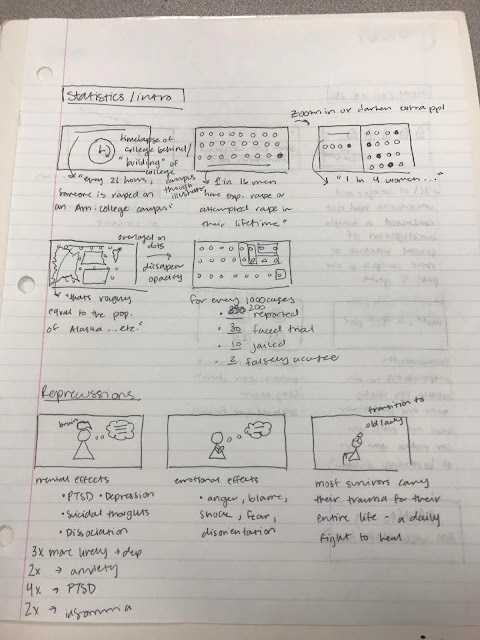 Statistics/intro
zoom in or darken extra ppl
timelapse of
college behind/
"building" of
college
campus
though
illustration
"every 21 hours,
someone is raped on
an Am. college campus."
1 in 16 men
have exp. rape or
attempted rape in
their lifetime"
"1 in 4 women..."
overlayed on
dots
disapear
opacity
"thats roughly
equal to the pop.
of Alaska ... etc."
for every 1000 cases
• 200 reported
• 30 faced trial
• 10 jailed
• 2 falsely accused
Reprecussions
brain
transition to
old lady
mental effects
• PTSD • Depression
• Suicidal thoughts
• Dissociation
3x more likely → dep
2x → anxiety
4x → PTSD
2x → insomnia
emotional effects
• anger, blame,
shock, fear,
disorientation
most survivors carry
their trauma for their
entire life - a daily
fight to heal